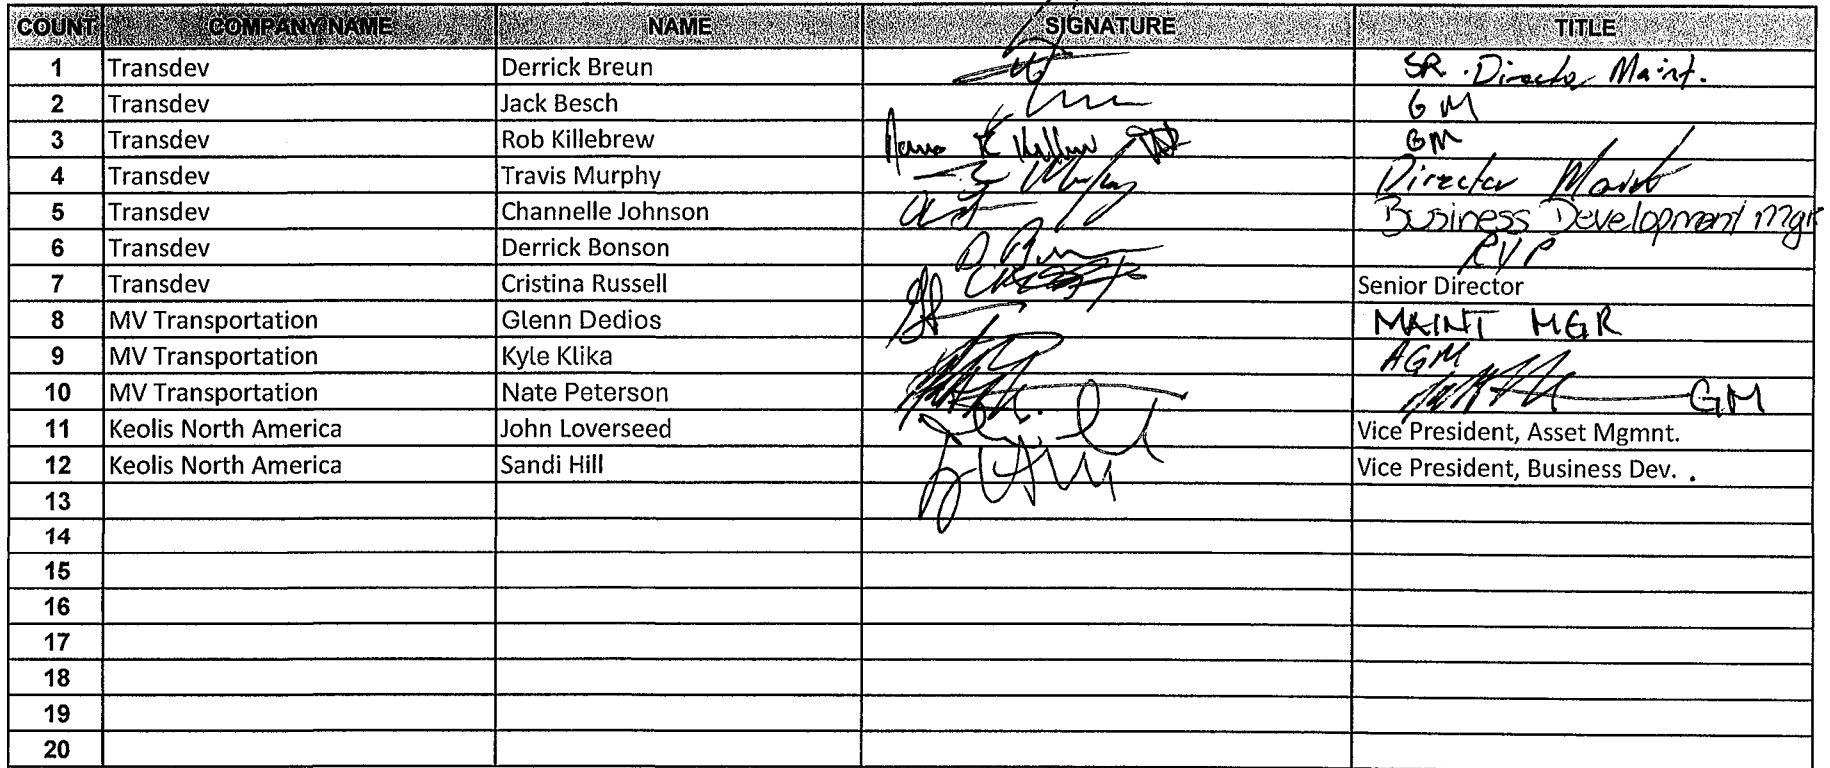 COUNT COMPANY NAME NAME SIGNATURE TITLE
1 Transdev Derrick Breun SR. Director Maint.
2 Transdev Jack Besch GM
3 Transdev Rob Killebrew GM
4 Transdev Travis Murphy Murphy Director Maint
5 Transdev Channelle Johnson Business Development Mgr
6 Transdev Derrick Bonson RVP
7 Transdev Cristina Russell Senior Director
8 MV Transportation Glenn Dedios MAINT MGR
9 MV Transportation Kyle Klika AGM
10 MV Transportation Nate Peterson GM
11 Keolis North America John Loverseed Vice President, Asset Mgmnt.
12 Keolis North America Sandi Hill Vice President, Business Dev. .
13
14
15
16
17
18
19
20